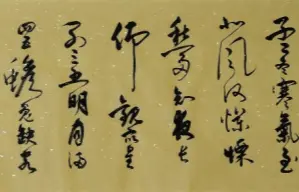 孟冬寒氣至
北風何慘慄
愁多知夜長
仰觀衆星
列三五明月滿
四五蟾兔缺客